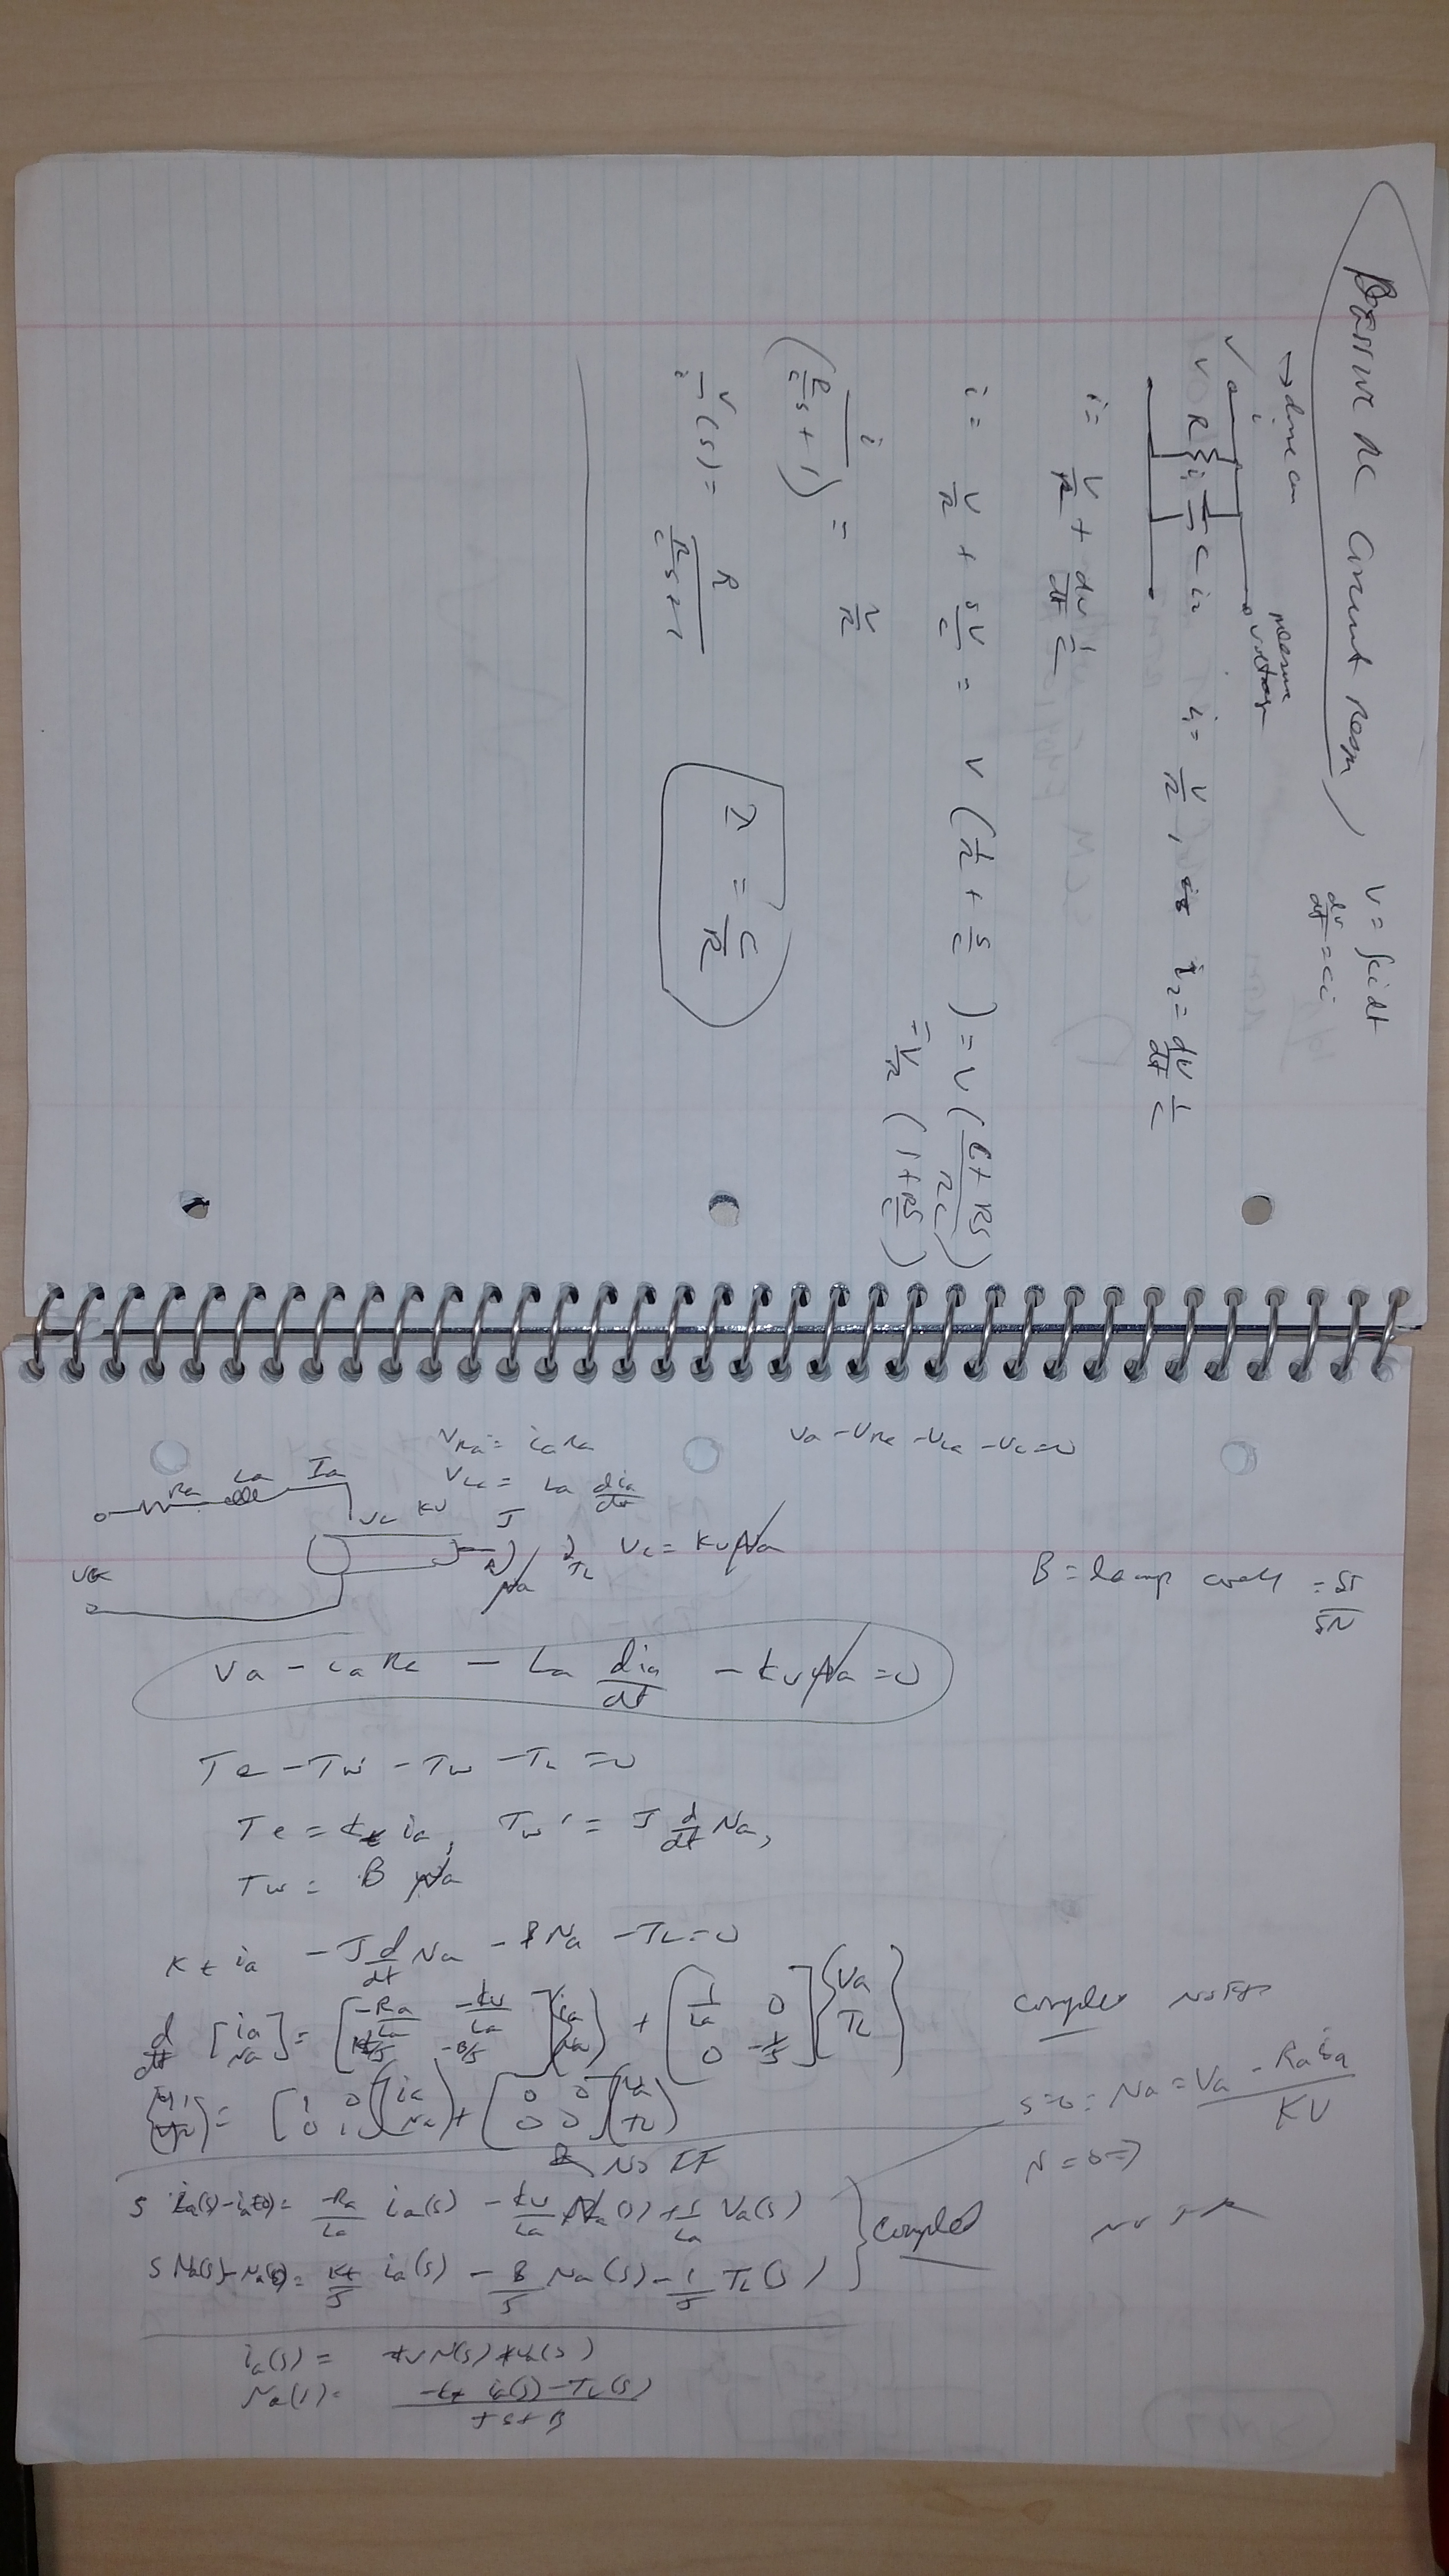 Passive RC Circuit Resp
V = ∫ c i dt
dv/dt = c i
→ drive an
measure voltage
V i R i₁ C i₂ i₁ = V/R , i₂ = dv/dt 1/C
i = V/R + dv/dt 1/C
i = V/R + sV/C = V ( 1/R + s/C ) = V ( (C + RS)/RC )
= V/R ( 1 + RS/C )
i/(R/C s + 1) = V/R
V/i (s) = R/(R/C s + 1)
λ = C/R
V_Ra = i_a R_a
V_a - V_Ra - V_La - V_c = 0
R_a L_a I_a
V_La = L_a di_a/dt
V_c K_v J
V_a
N_a T_L V_c = K_v N_a
B = damp coeff = δT/δN
V_a - i_a R_a - L_a di_a/dt - K_v N_a = 0
T_e - T_w' - T_w - T_L = 0
T_e = K_t i_a, T_w' = J d/dt N_a,
T_w = B N_a
K_t i_a - J d/dt N_a - B N_a - T_L = 0
d/dt [i_a N_a] = [-R_a/L_a -K_v/L_a K_t/J -B/J] {i_a N_a} + [1/L_a 0 0 -1/J] {V_a T_L}
= [1 0 0 1] {i_a N_a} + [0 0 0 0] {V_a T_L}
No FF
s = 0 = N_a = (V_a - R_a i_a)/KV
N = 0 ⇒
s i_a(s) - i_a(0) = -R_a/L_a i_a(s) - K_v/L_a N_a(s) + 1/L_a V_a(s)
s N_a(s) - N_a(0) = K_t/J i_a(s) - B/J N_a(s) - 1/J T_L(s)
Coupled
i_a(s) = -K_v N(s) + V_a(s)
N_a(s) = (-K_t i_a(s) - T_L(s))/(J s + B)